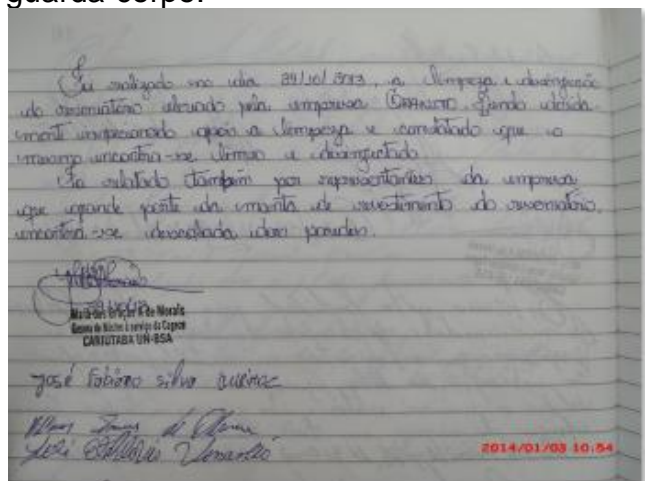 guarda-corpo.
Foi realizado no dia 29/10/2013, a limpeza e desinfecção
do reservatório elevado pela empresa sendo devida
mente inspecionado após a limpeza e constatado que o
mesmo encontra-se limpo e desinfectado.
Foi relatado também por representantes da empresa
que grande parte da manta de revestimento do reservatório,
encontra-se descolada das paredes.
Maria das Graças A de Morais
Gestora de Núcleo à serviço da Cagece
CARIUTABA UN-BSA
José Fabiano Silva Queiroz
2014/01/03 10:54